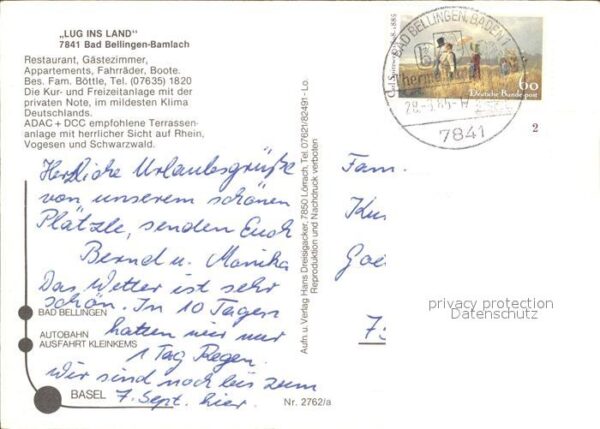 „LUG INS LAND"
7841 Bad Bellingen-Bamlach
Restaurant, Gästezimmer,
Appartements, Fahrräder, Boote.
Bes. Fam. Böttle, Tel. (07635) 1820
Die Kur- und Freizeitanlage mit der
privaten Note, im mildesten Klima
Deutschlands.
ADAC + DCC empfohlene Terrassen-
anlage mit herrlicher Sicht auf Rhein,
Vogesen und Schwarzwald.
Herzliche Urlaubsgrüße
von unserem schönen
Plätzle, senden Euch
Bernd u. Monika
Das Wetter ist sehr
schön. In 10 Tagen
hatten wir nur
1 Tag Regen.
Wir sind noch bis zum
7. Sept. hier.
BAD BELLINGEN
AUTOBAHN
AUSFAHRT KLEINKEMS
BASEL
Nr. 2762/a
Aufn. u. Verlag Hans Dreisigacker, 7850 Lörrach, Tel. 07621/82491 - Lo.
Reproduktion und Nachdruck verboten
BAD BELLINGEN, BADEN
7841
60
Deutsche Bundespost
2
Fam.
privacy protection
Datenschutz